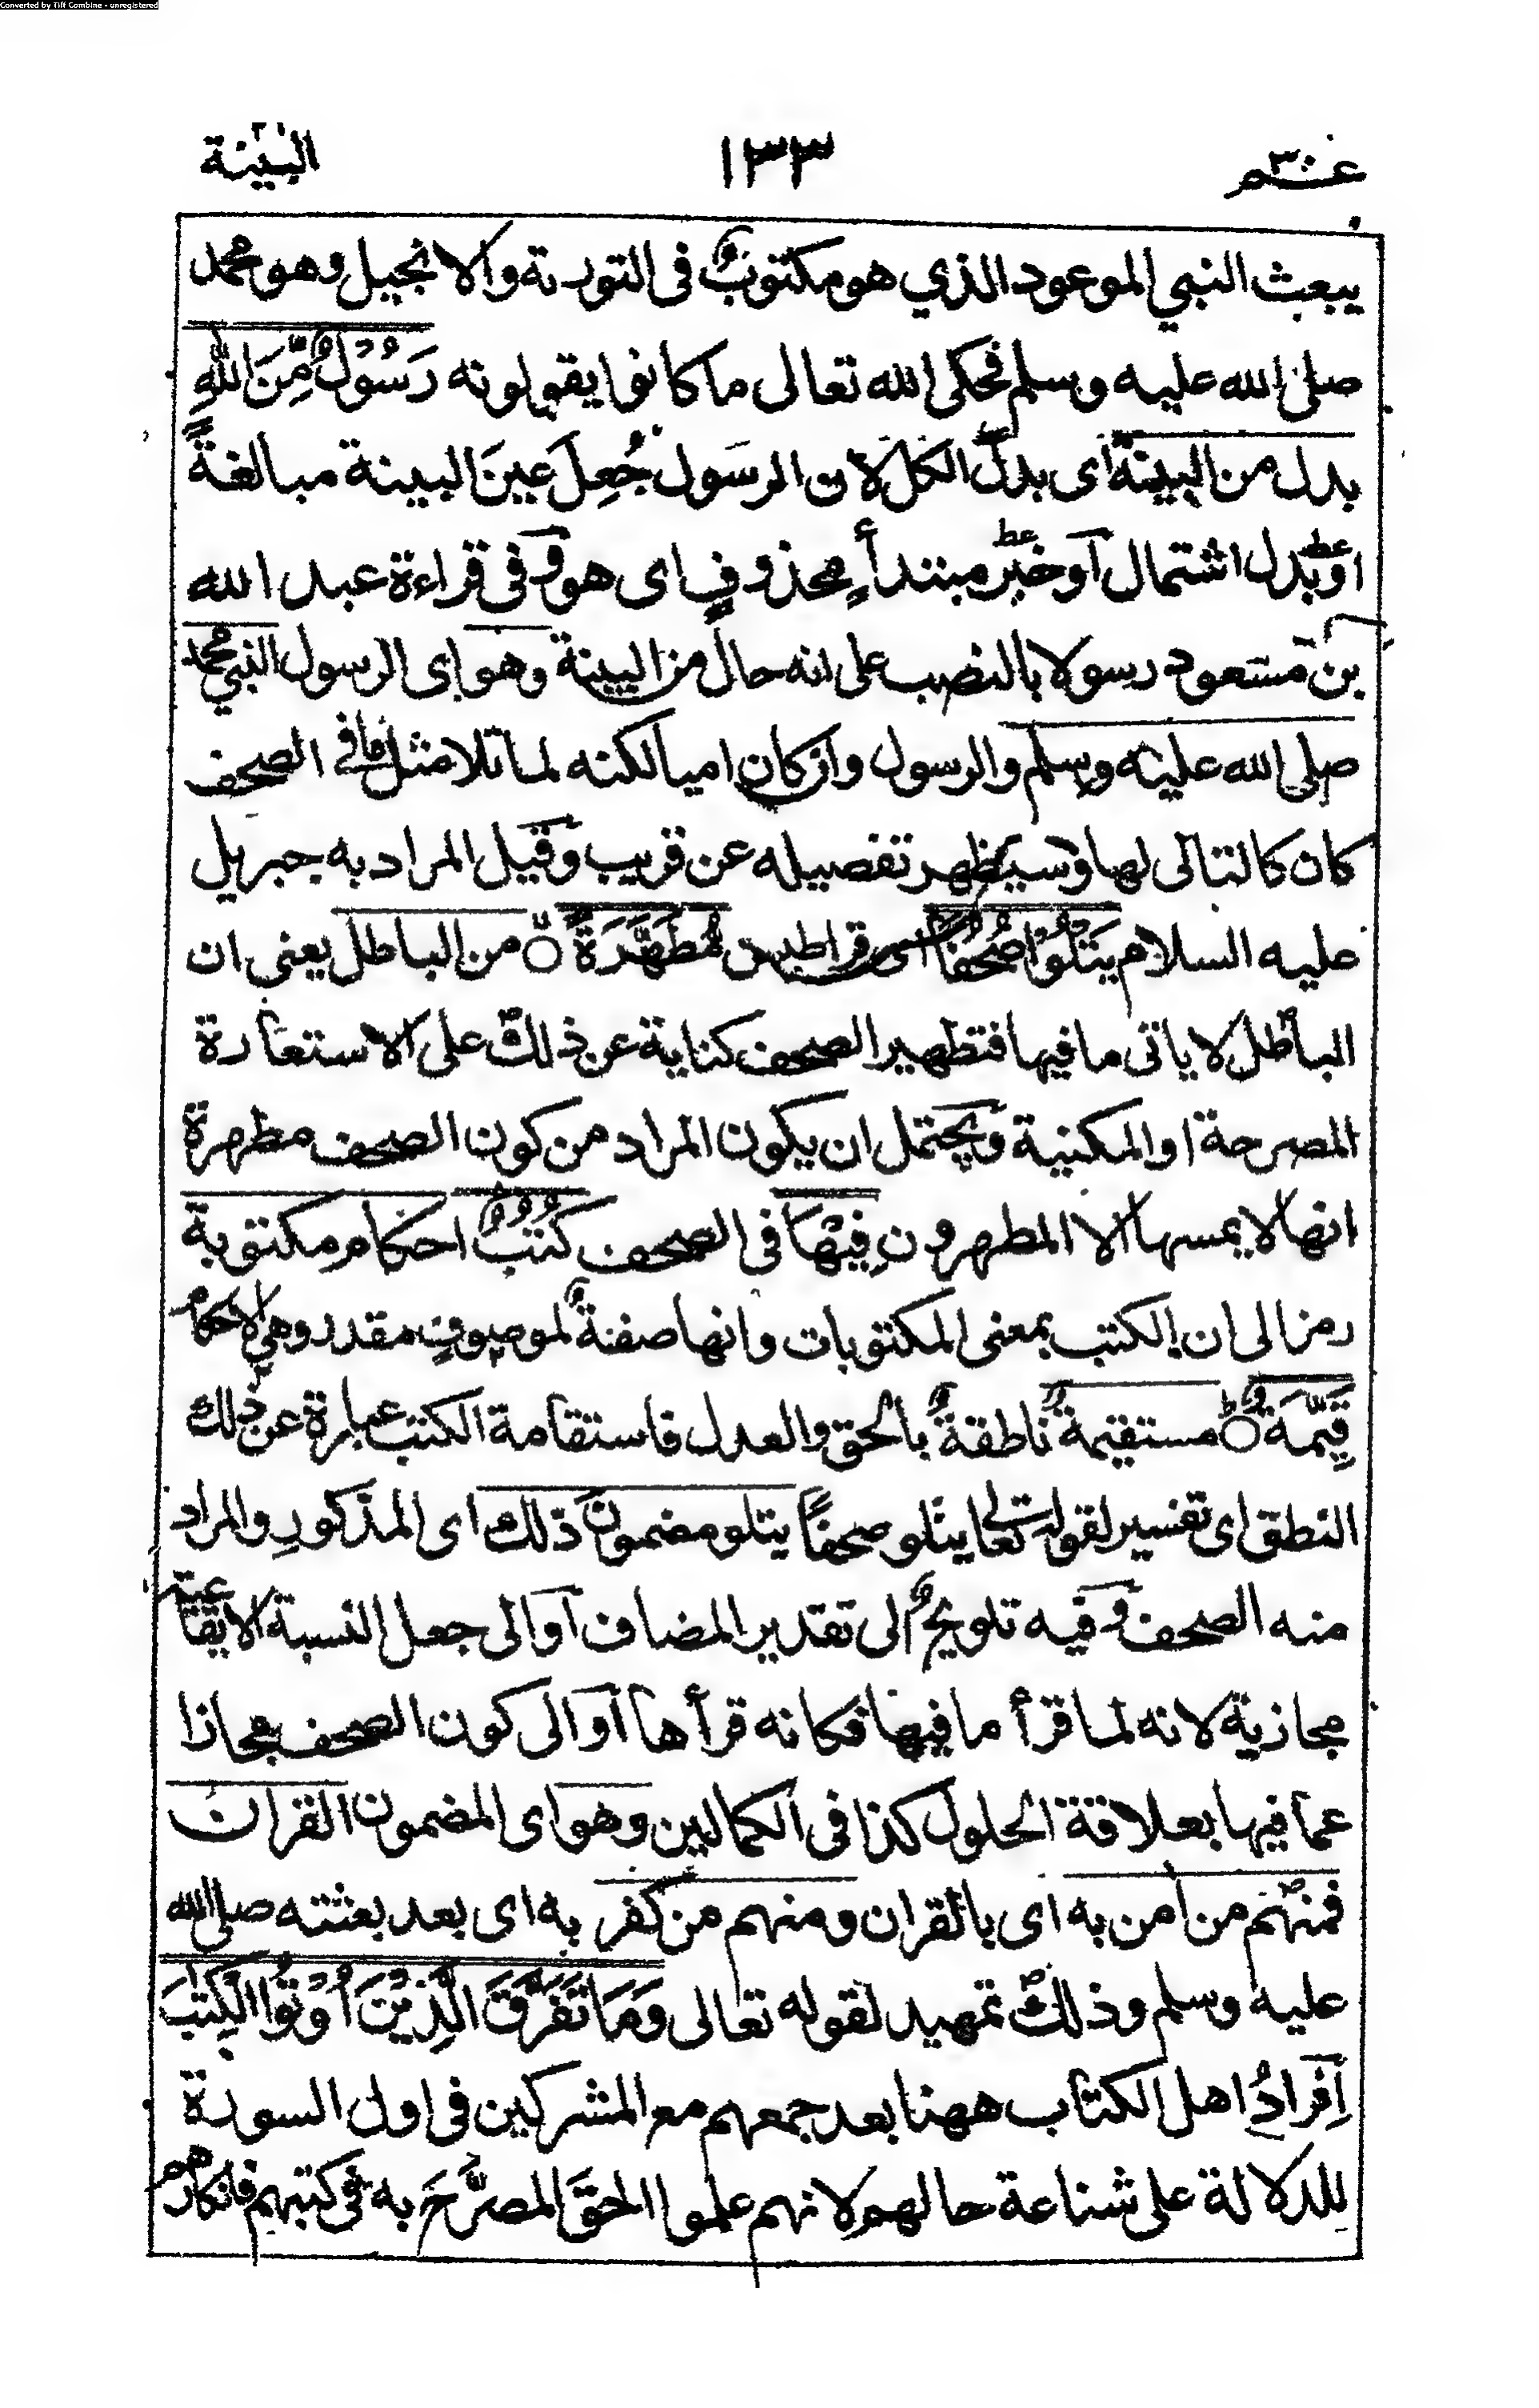 Converted by Tiff Combine - unregistered
عم ٣٠ ١٣٣ البينة
يبعث النبي الموعود الذي هو مكتوبٌ فى التورىة والانجيل وهو محمد
صلى الله عليه وسلم فحكى الله تعالى ما كانوا يقولونه رَسُوْلٌ مِّنَ اللّٰهِ
بدل من البينة اى بدل الكل لان الرسول جُعِلَ عينَ البينة مبالغةً
او بدل اشتمال او خبر مبتدأٍ محذوفٍ اى هو و فى قراءة عبد الله
بن مسعود رسولا بالنصب على انه حال من البينة وهو اى الرسول النبي محمد
صلى الله عليه وسلم والرسول وان كان اميا لكنه لما تلا مثل ما في الصحف
كان كالتالى لها وسيظهر تفصيله عن قريب وقيل المراد به جبريل
عليه السلام يَتْلُوْا صُحُفًا اى قراطيس مُّطَهَّرَةً من الباطل يعنى ان
الباطل لا ياتى ما فيها فتطهير الصحف كناية عن ذلك على الاستعارة
المصرحة او المكنية ويحتمل ان يكون المراد من كون الصحف مطهرة
انها لا يمسها الا المطهرون فِيْهَا فى الصحف كُتُبٌ احكام مكتوبة
رمز الى ان الكتب بمعنى المكتوبات وانها صفةٌ لموصوفٍ مقدر وهى الاحكام
قَيِّمَةٌ مستقيمة ناطقةٌ بالحق والعدل فاستقامة الكتب عبارة عن ذلك
النطق اى تفسير لقوله تعالى يتلو صحفاً يتلو مضمون ذلك اى المذكورِ والمراد
منه الصحف وفيه تلويحٌ الى تقدير المضاف او الى جعل النسبة الايقاعية
مجازية لانه لما قرأ ما فيها فكانه قرأها او الى كون الصحف مجازا
عما فيها بعلاقة الحلول كذا فى الكمالين وهو اى المضمون القران
فمنهم من امن به اى بالقران ومنهم من كفر به اى بعد بعثته صلى الله
عليه وسلم وذلك تمهيد لقوله تعالى وَمَا تَفَرَّقَ الَّذِيْنَ اُوْتُوا الْكِتٰبَ
اِفرادُ اهل الكتاب ههنا بعد جمعهم مع المشركين فى اول السورة
للدلالة على شناعة حالهم لانهم علموا الحقَ المصرَّحَ به فى كتبهم فانكارهم